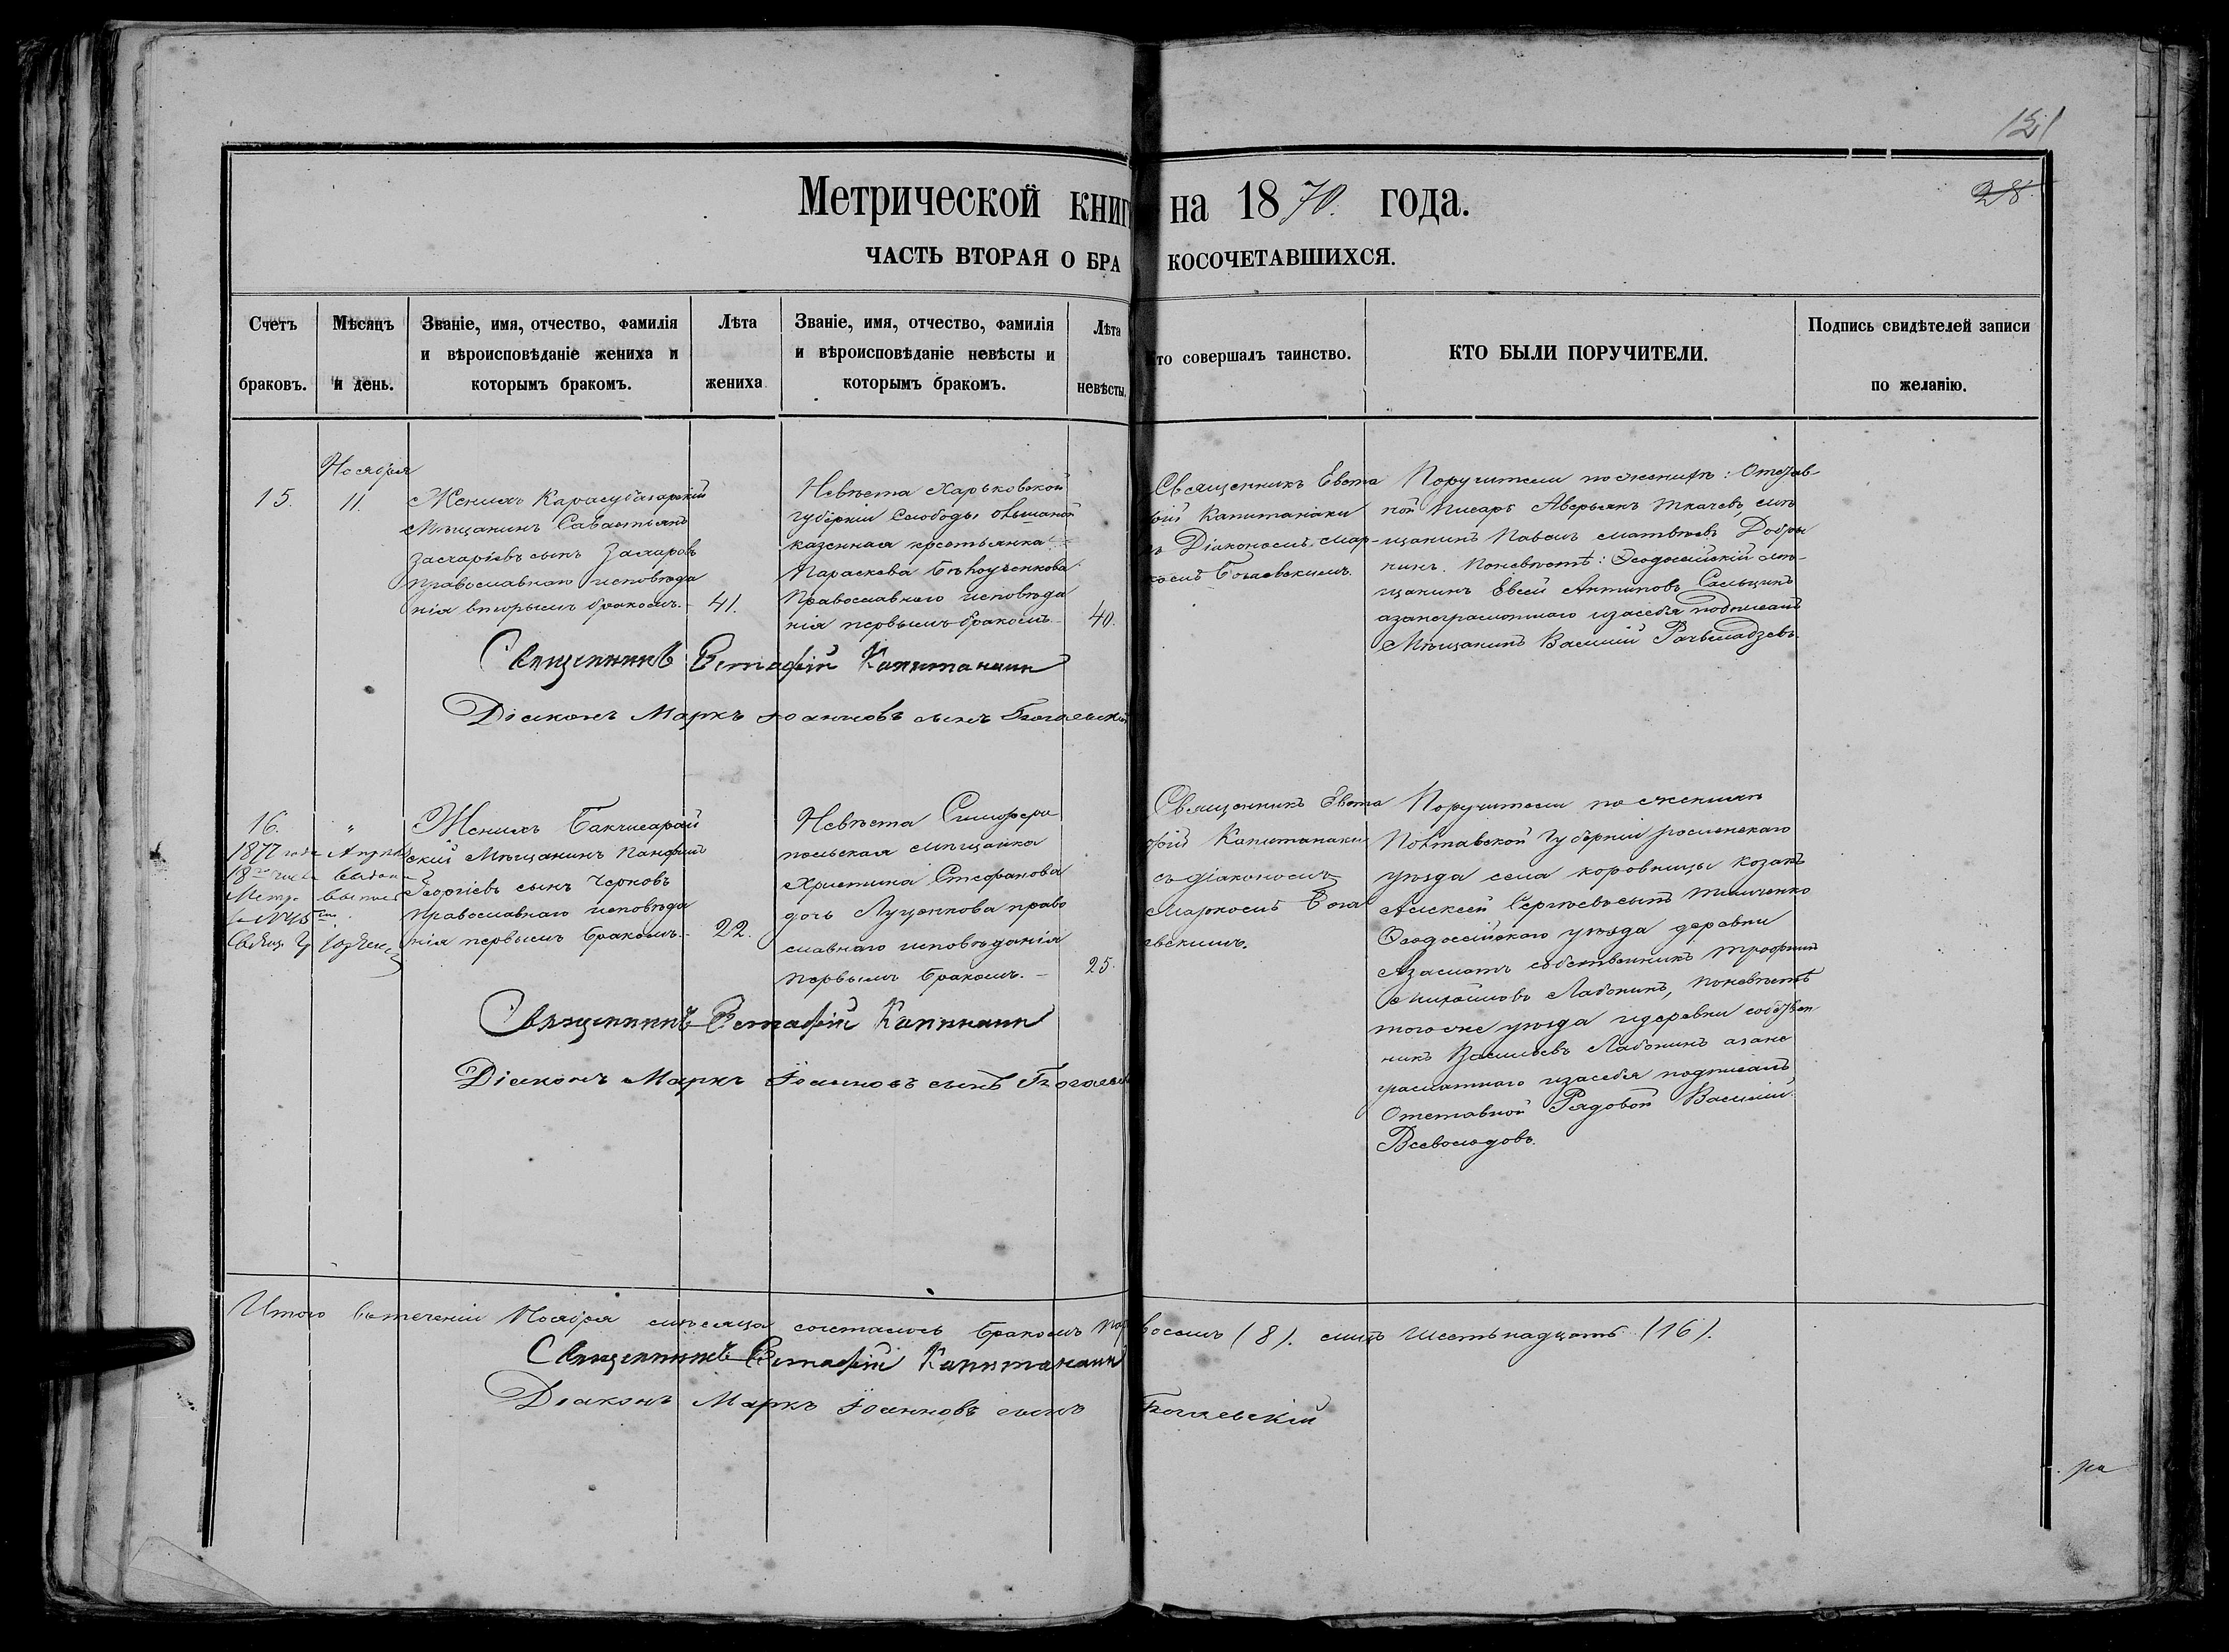 121
Метрической книг на 1870. года.
28.
ЧАСТЬ ВТОРАЯ О БРА КОСОЧЕТАВШИХСЯ.
Счетъ
браковъ.
Мѣсяцъ
и день.
Званіе, имя, отчество, фамилія
и вѣроисповѣданіе жениха и
которымъ бракомъ.
Лѣта
жениха
Званіе, имя, отчество, фамилія
и вѣроисповѣданіе невѣсты и
которымъ бракомъ.
Лѣта
невѣсты.
то совершалъ таинство.
КТО БЫЛИ ПОРУЧИТЕЛИ.
Подпись свидѣтелей записи
по желанію.
15.
Ноября
11.
Женихъ Карасубазарскій
Мѣщанинъ Савастьянъ
Захаріевъ сынъ Захаровъ
православнаго исповѣда
нія вторымъ бракомъ.-
41.
Невѣста Харьковской
губерніи Слободы
казенная крестьянка
Параскева
Православнаго исповѣда
нія первымъ бракомъ-
40.
Священникъ Евста
фій Капитанаки
ъ Діакономъ Мар-
комъ Богаевскимъ.
Поручители по женихѣ: Отстав-
ной Писарь Аверьянъ Ткачевъ, мѣ
щанинъ Павелъ Матвѣевъ Добры
нинъ. Поневѣстѣ: Ѳеодосійскій мѣ-
щанинъ Евсей Антиповъ
азанеграмотнаго изасебя подписалъ
Мѣщанинъ Василій
Священникъ Евстафій Капитанаки
Діаконъ Маркъ Іоанновъ сынъ Богаевскій
16.
"
1877 года Апрѣля
18го числа выдана
Метр. выпись
за №45мъ
Женихъ Бахчисарай
скій Мѣщанинъ Панфилъ
Георгіевъ сынъ Черковъ
православнаго исповѣда
нія первымъ бракомъ.-
22.
Невѣста Симферо
польская мѣщанка
Христина Стефанова
дочь Луценкова право
славнаго исповѣданія
первымъ бракомъ.-
25.
Священникъ Евста
фій Капитанаки
съ діакономъ
Маркомъ Бога
евскимъ.
Поручители по женихѣ
Полтавской Губерніи роменскаго
уѣзда села коровинцы козакъ
Алексей Сергѣевъ сынъ Тимченко
Ѳеодосійскаго уѣзда деревни
Азаматъ собственникъ Трофимъ
Михайловъ Лабонинъ, поневѣстѣ
тогоже уѣзда идеревни собствен
никъ Васильевъ Лабонинъ азане
грамотнаго изасебя подписалъ
Отставной Рядовой Василій
Всеволодовъ.
Священникъ Евстафій Капитанаки
Діаконъ Маркъ Іоанновъ сынъ Богаевс
Итого втеченіи Ноября мѣсяца сочеталось бракомъ восемь (8). лицъ Шестьнадцать (16).
Священникъ Евстафій Капитанаки
Діаконъ Маркъ Іоанновъ сынъ Богаевскій